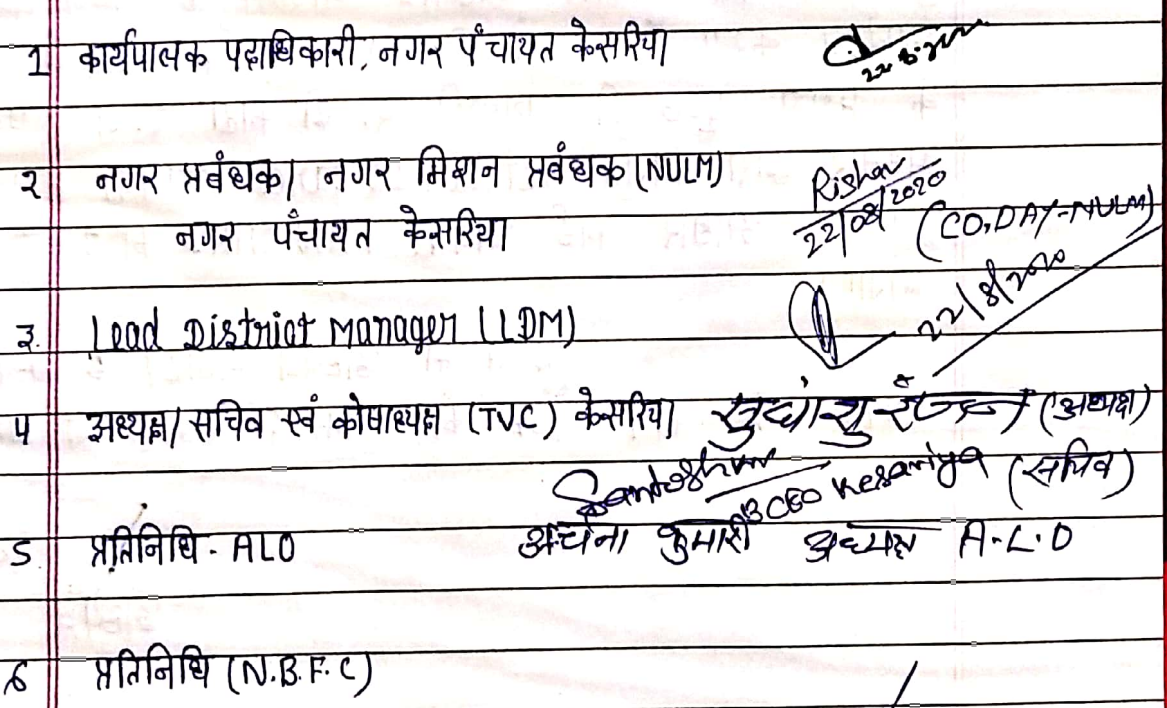 1 कार्यपालक पदाधिकारी, नगर पंचायत केसरिया
२ नगर प्रबंधक/ नगर मिशन प्रबंधक (NULM) Rishav
नगर पंचायत केसरिया 22/08/2020 (CO, DAY-NULM)
३. Lead District Manager (LDM) 22/8/2020
4 अध्यक्ष/ सचिव एवं कोषाध्यक्ष (TVC) केसरिया सुधांशु रंजन (अध्यक्ष)
CEO Kesariya (सचिव)
5 प्रतिनिधि - ALO अर्चना कुमारी अध्यक्ष A.L.O
6 प्रतिनिधि (N.B.F.C)